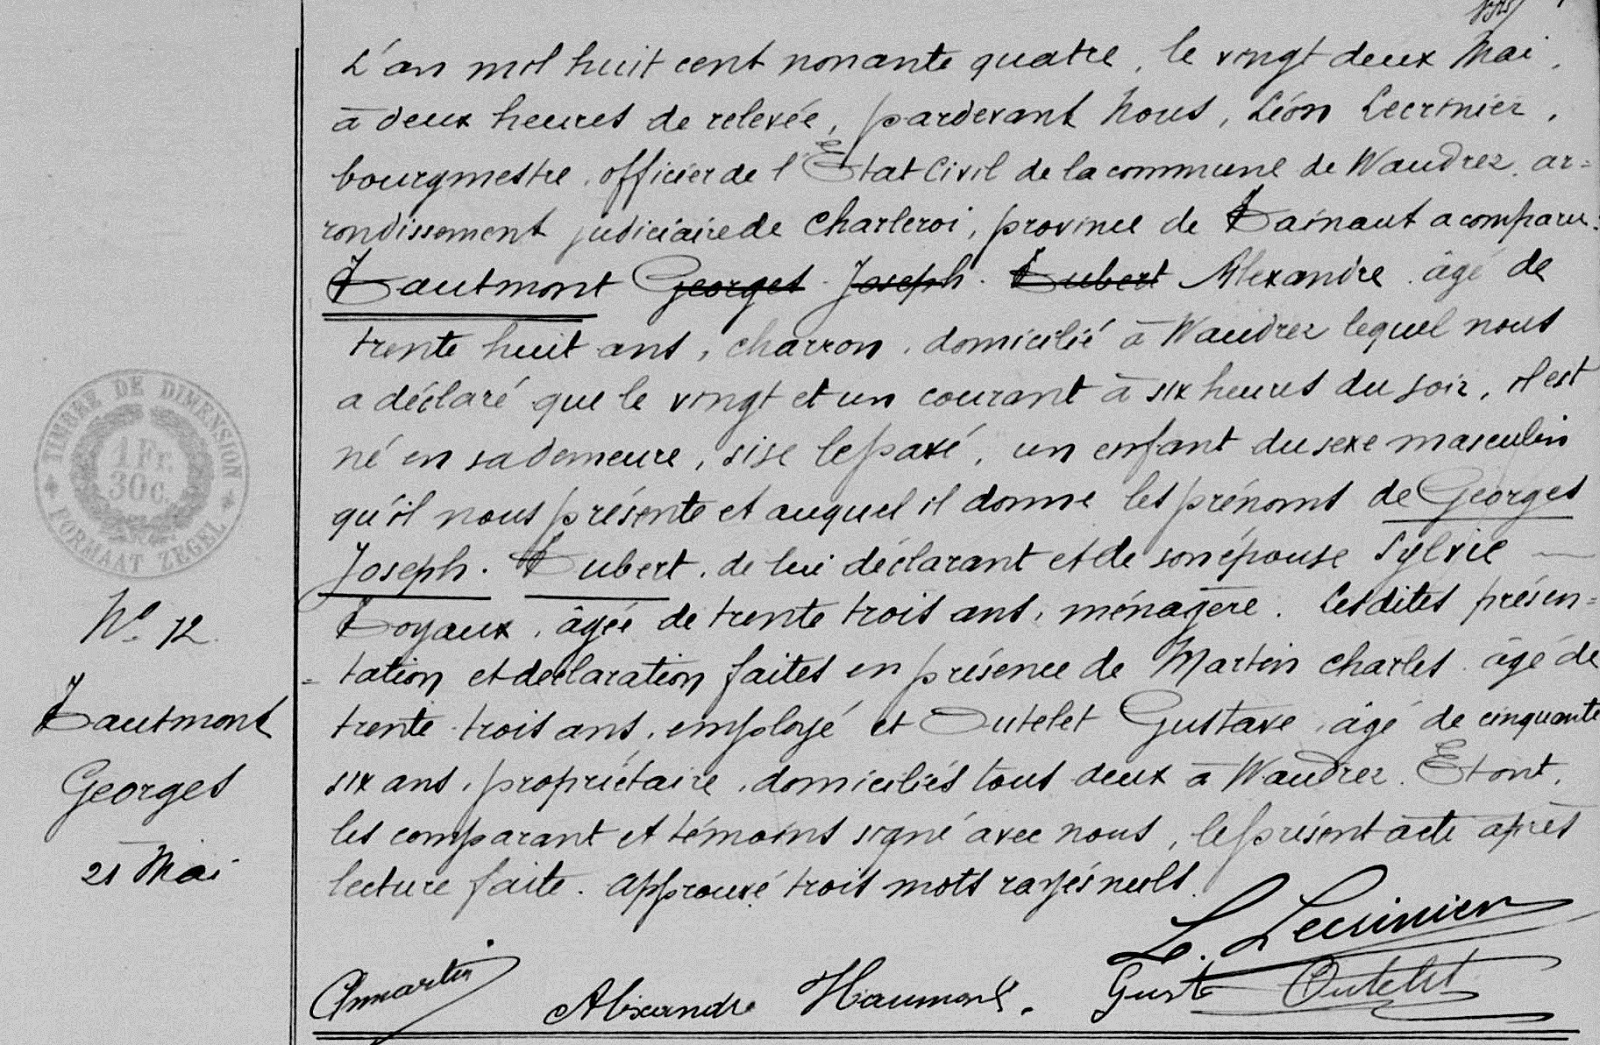 L'an mil huit cent nonante quatre, le vingt deux Mai,
à deux heures de relevée, pardevant Nous, Léon Lecrinier,
bourgmestre, officier de l'Etat Civil de la commune de Waudrez, ar=
rondissement judiciaire de Charleroi, province de Hainaut a comparu:
Hautmont Georges Joseph. Hubert Alexandre âgé de
trente huit ans, charron, domicilié à Waudrez lequel nous
a déclaré que le vingt et un courant à six heures du soir, il est
né en sa demeure, sise le pavé, un enfant du sexe masculin
qu'il nous présente et auquel il donne les prénoms de Georges
Joseph. Hubert, de lui déclarant et de son épouse Sylvie —
Hoyaux, âgée de trente trois ans, ménagère. Lesdites présen=
= tation et déclaration faites en présence de Martin Charles âgé de
trente trois ans, employé et Outelet Gustave, âgé de cinquante
six ans, propriétaire, domiciliés tous deux à Waudrez. Et ont,
les comparant et témoins signé avec nous, le présent acte après
lecture faite. Approuvé trois mots rayés nuls.
L. Lecrinier
Chmartin Alexandre Haumont. Gust Outelet
TIMBRE DE DIMENSION
1 Fr.
30 c.
FORMAAT ZEGEL
No 12
Hautmont
Georges
21 Mai